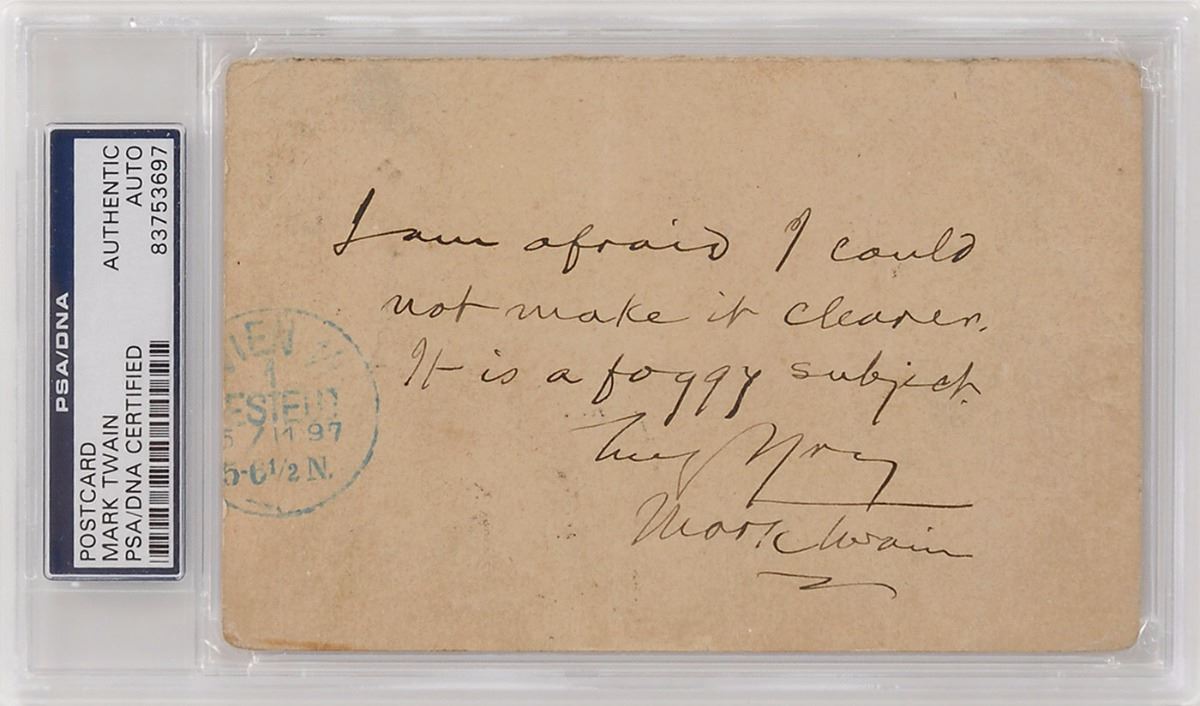 PSA/DNA
POSTCARD
MARK TWAIN
PSA/DNA CERTIFIED
AUTHENTIC
AUTO
83753697
I am afraid I could
not make it clearer.
It is a foggy subject.
Truly Yrs
Mark Twain
WIEN
ESTELLT
5 / 11 97
5-6 1/2 N.